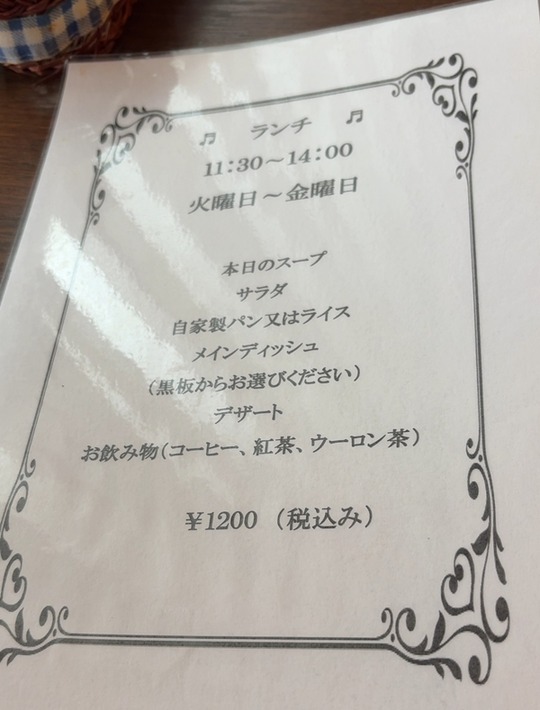 ♬ ランチ ♬
11:30～14:00
火曜日～金曜日
本日のスープ
サラダ
自家製パン又はライス
メインディッシュ
（黒板からお選びください）
デザート
お飲み物（コーヒー、紅茶、ウーロン茶）
¥1200 （税込み）